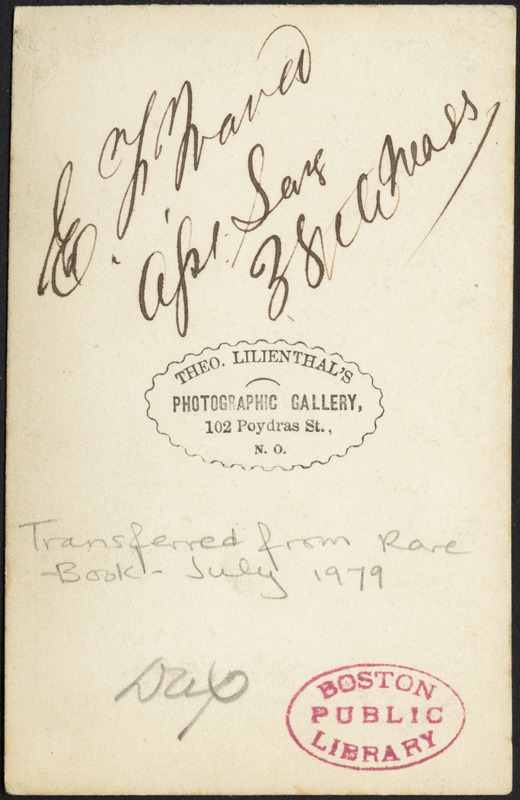 E. F. Ward
Asst. Surg
38th Mass
THEO. LILIENTHAL'S
PHOTOGRAPHIC GALLERY,
102 Poydras St.,
N. O.
Transferred from Rare
-Book- July 1979
Dup
BOSTON
PUBLIC
LIBRARY